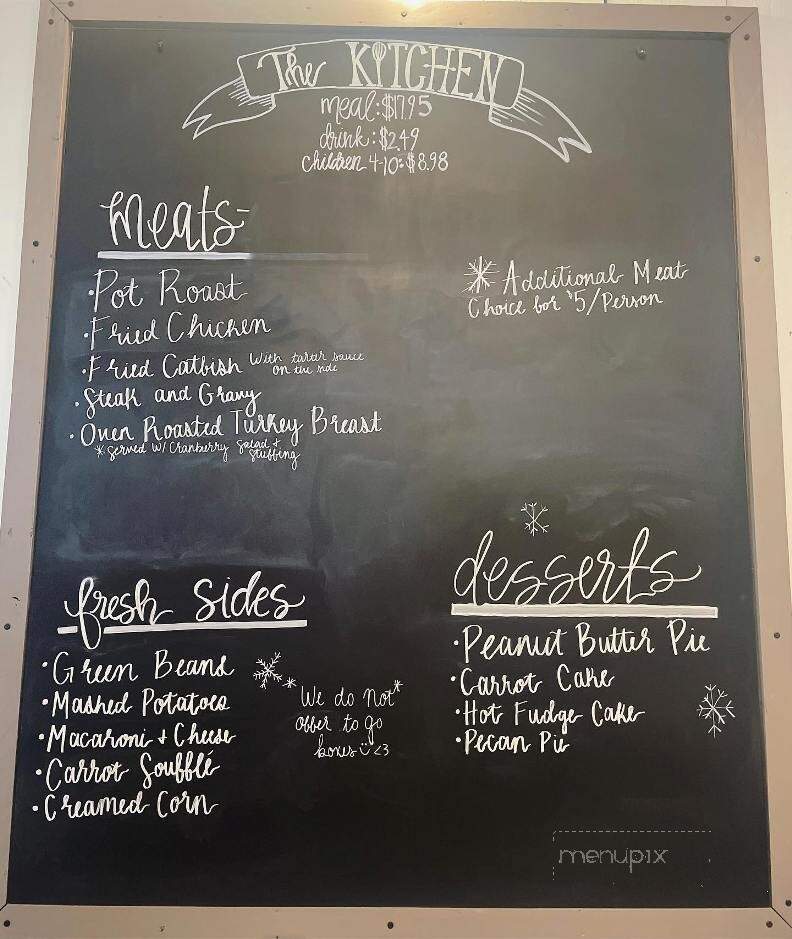 The KITCHEN
meal: $17.95
drink: $2.49
children 4-10: $8.98
Meats-
• Pot Roast
• Fried Chicken
• Fried Catfish With tarter sauce
on the side
• Steak and Gravy
• Oven Roasted Turkey Breast
* Served W/ Cranberry Salad +
Stuffing
* Additional Meat
Choice for $5/Person
fresh sides
• Green Beans
• Mashed Potatoes
• Macaroni + Cheese
• Carrot Soufflé
• Creamed Corn
*We do not*
offer to go
boxes <3
desserts
• Peanut Butter Pie
• Carrot Cake
• Hot Fudge Cake
• Pecan Pie
menupix